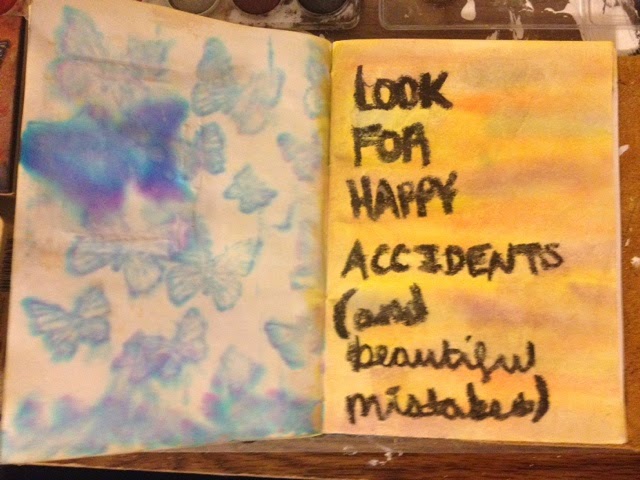 LOOK
FOR
HAPPY
ACCIDENTS
(and
beautiful
mistakes)